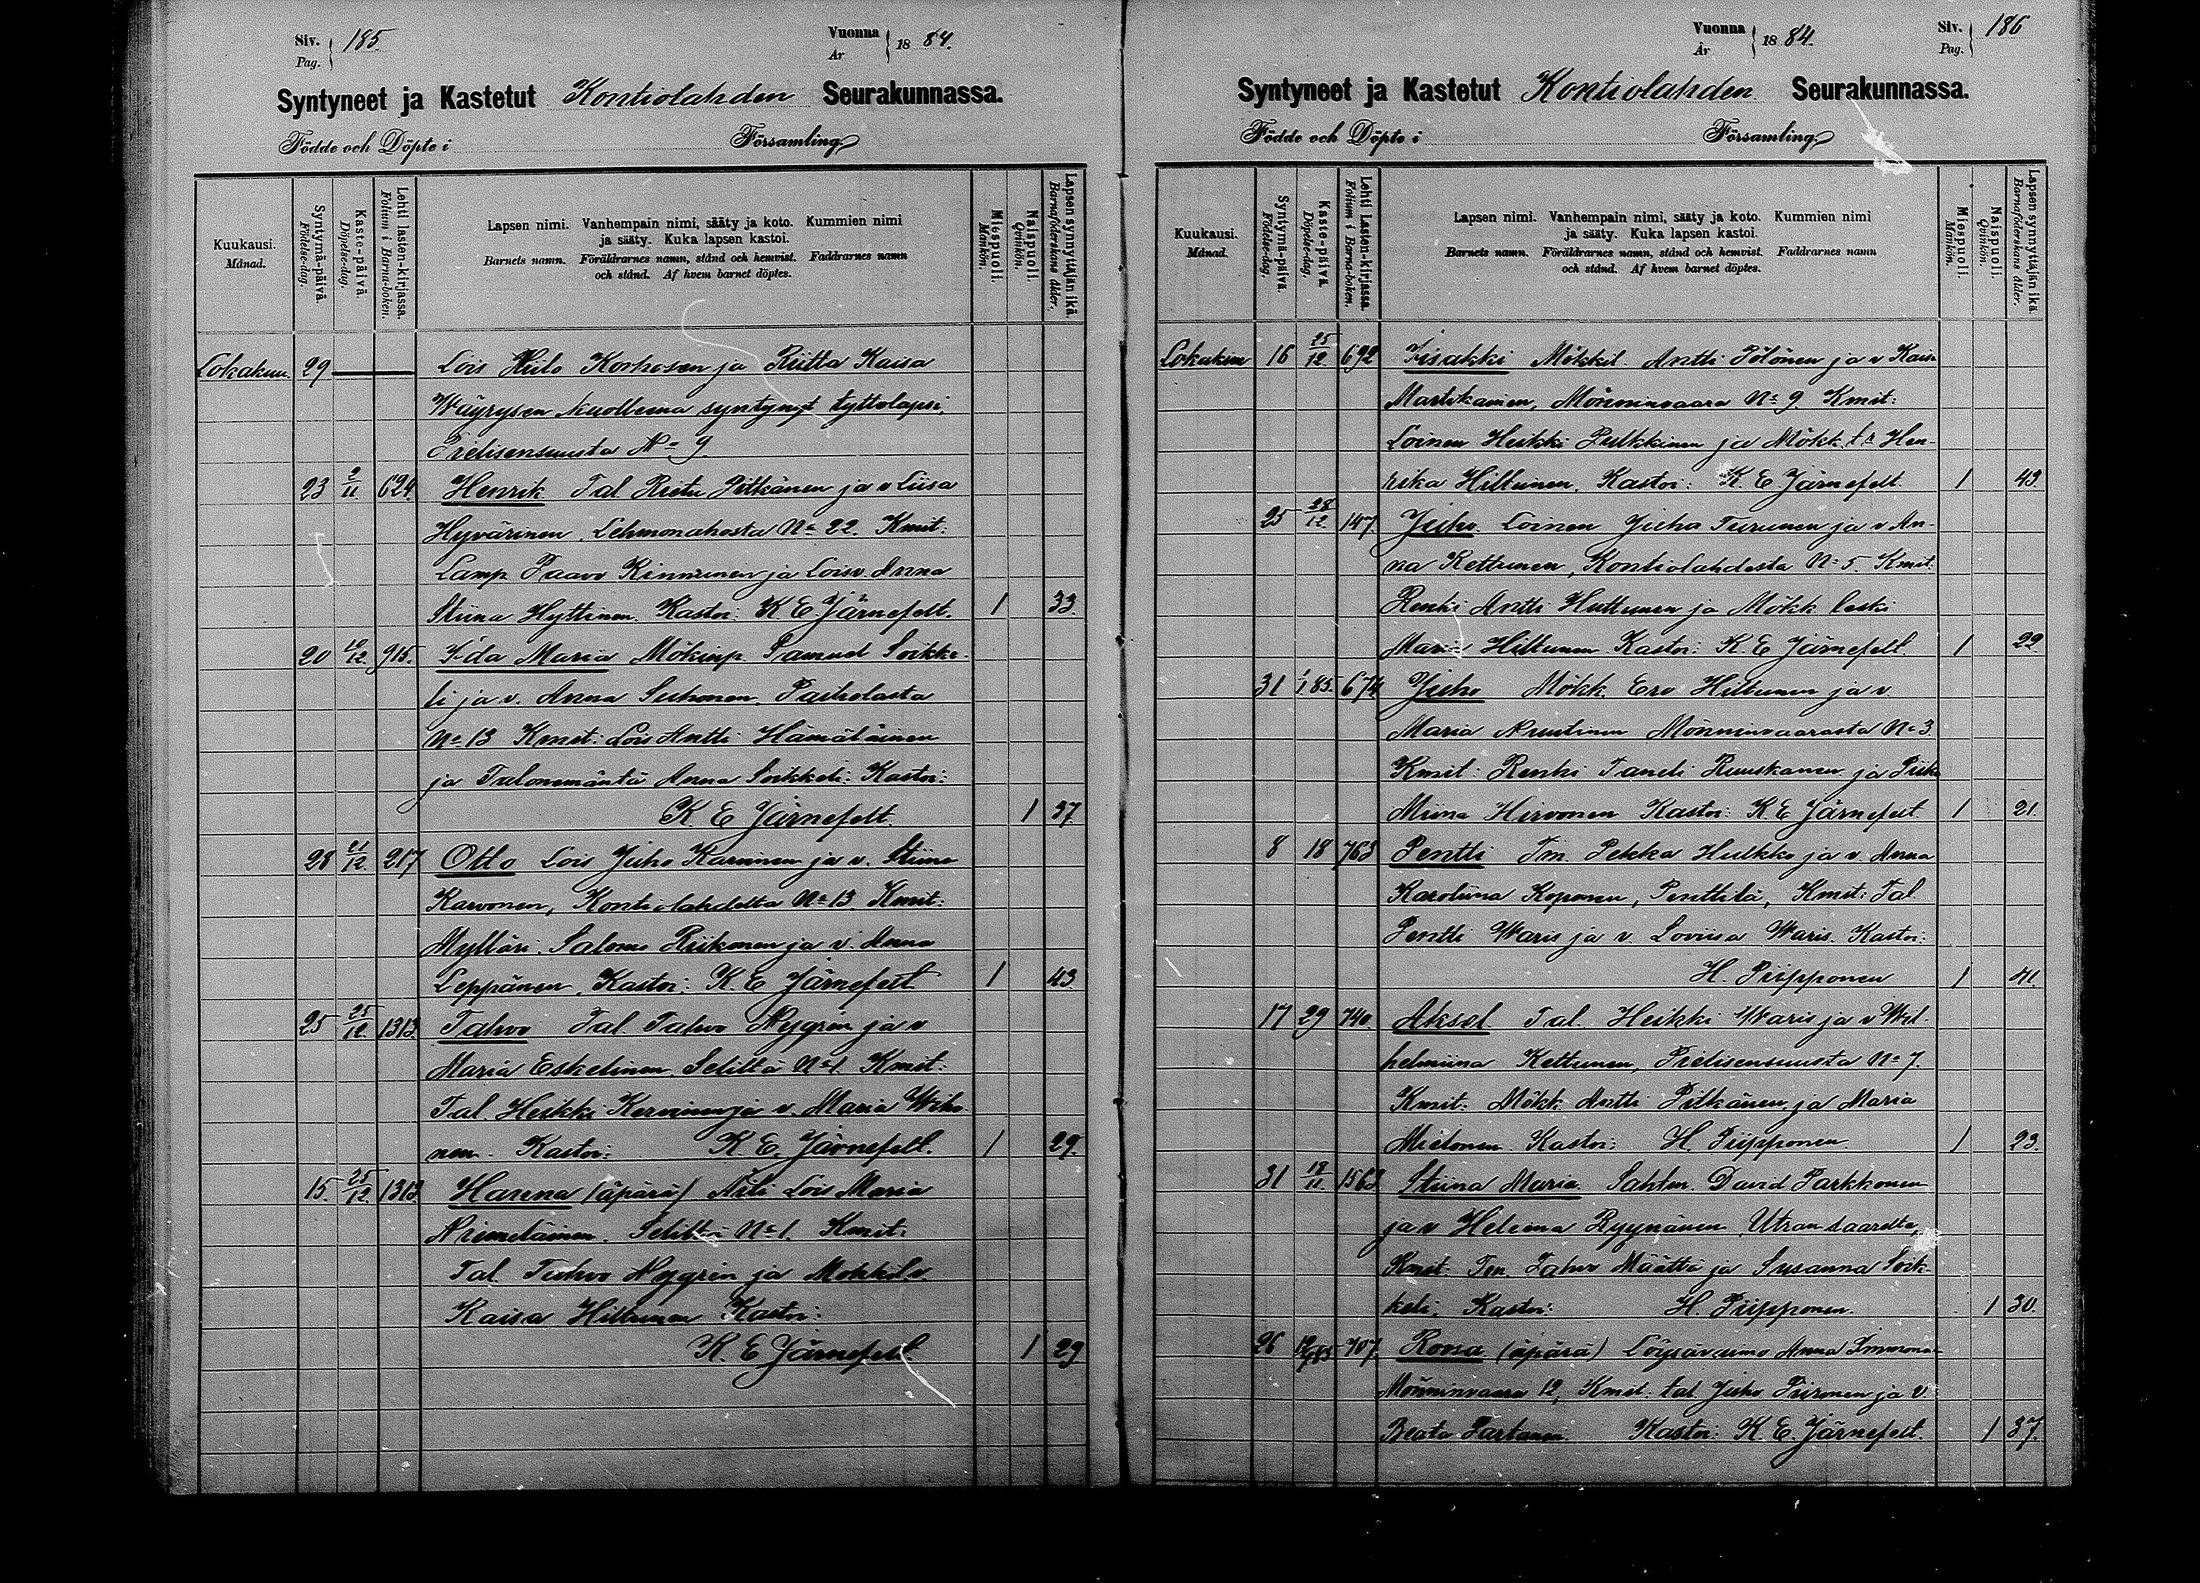 Siv. 185. Vuonna 1884.
Pag. År
Syntyneet ja Kastetut Kontiolahden Seurakunnassa.
Födde och Döpte i Församling
Kuukausi. Månad.
Syntymä-päivä. Födelse-dag.
Kaste-päivä. Döpelse-dag.
Lehti lasten-kirjassa. Folium i Barna-boken.
Lapsen nimi. Vanhempain nimi, sääty ja koto. Kummien nimi
ja sääty. Kuka lapsen kastoi.
Barnets namn. Föräldrarnes namn, stånd och hemvist. Faddrarnes namn
och stånd. Af hvem barnet döptes.
Miespuoli. Mankön.
Naispuoli. Qvinkön.
Lapsen synnyttäjän ikä. Barnaföderskans ålder.
Lokakuu. 29 Lois Korhosen ja Riitta Kaisa
Wäyrysen kuolleena syntynyt tyttölapsi,
Pielisensuusta No 9.
23 2/11 624. Henrik Tal Pitkänen ja v Liisa
Hyvärinen. Lehmonahosta No 22. Kmit:
Lamp. Paavo Kinnunen ja Loisv. Anna
Stiina Hyttinen. Kastoi: K. E Järnefelt. 1 33.
20 10/12. 915. Ida Maria Mökinp. Samuel Soikke-
li ja v. Anna Suhonen. Paiholasta
No 13 Kmit: Lois Antti Hämäläinen
ja Talonemäntä Anna Soikkeli. Kastoi:
K. E Järnefelt. 1 37
28 21/12. 217 Otto Lois Juho Karvinen ja v. Stiina
Karvonen, Kontiolahdelta No 13 Kmit:
Mylläri. Salomo Riikonen ja v. Anna
Leppänen. Kastoi: K. E Järnefelt 1 43.
25 25/12. 1313. Tahvo Tal Tahvo Nygrén ja v
Maria Eskelinen. Seliltä No 1 Kmit:
Tal. Heikki Kervinen ja v. Maria Wiho-
nen. Kastoi: K E. Järnefelt. 1 29.
15. 25/12 1313 Hanna (äpärä) Äiti Lois Maria
Niemeläinen. Seliltä No 1. Kmit:
Tal. Tahvo Nygrén ja Mökkil v.
Kaisa Hiltunen Kastoi:
K. E Järnefelt 1 29
Vuonna 1884. Siv. 186
År Pag.
Syntyneet ja Kastetut Kontiolahden Seurakunnassa.
Födde och Döpte i Församling
Kuukausi. Månad.
Syntymä-päivä. Födelse-dag.
Kaste-päivä. Döpelse-dag.
Lehti Lasten-kirjassa. Folium i Barna-boken.
Lapsen nimi. Vanhempain nimi, sääty ja koto. Kummien nimi
ja sääty. Kuka lapsen kastoi.
Barnets namn. Föräldrarnes namn, stånd och hemvist. Faddrarnes namn
och stånd. Af hvem barnet döptes.
Miespuoli. Mankön.
Naispuoli. Qvinkön.
Lapsen synnyttäjän ikä. Barnaföderskans ålder.
Lokakuu 16 25/12. 692 Iisakki Mökkil. Antti Pölönen ja v Kaisa
Martikainen, Mönninvaara No 9. Kmit:
Loinen Heikki Pulkkinen ja Mökk. Hen-
rika Hiltunen. Kastoi: K E Järnefelt 1 43.
25 28/12. 147. Juho Loinen Juho Turunen ja v An-
na Kettunen, Kontiolahdesta No 5. Kmit:
Renki Antti Huttunen ja Mökk leski
Maria Hiltunen Kastoi: K. E Järnefelt. 1 22
31 1/1 85. 674 Juho Mökk. Ero Hiltunen ja v
Maria Nuutinen Mönninvaarasta No 3.
Kmit: Renki Taneli Ruuskanen ja Piika
Miina Hirvonen Kastoi: K. E Järnefelt. 1 21.
8 18 763 Pentti Tm. Pekka Hulkko ja v. Anna
Karoliina Koponen, Penttilä, Kmit: Tal
Pentti Waris ja v. Loviisa Waris. Kastoi:
H. Piipponen 1 41.
17 29 740. Aksel Tal. Heikki Waris ja v Wil-
helmiina Kettunen, Pielisensuusta No 7.
Kmit: Mökk Antti Pitkänen ja Maria
Mietonen. Kastoi: H. Piipponen 1 23.
31 18/11. 1563 Stiina Maria Sahten. David Parkkonen
ja v Heleena Ryynänen, Utran saarelta,
Kmit. Tm. Tahvo Määttä ja Susanna Soik-
keli. Kastoi: H. Piipponen. 1 30.
26 707. Roosa (äpärä) Anna Immonen
Mönninvaara 12, Kmit. tal Juho Piironen ja v
Beata Partanen Kastoi: K. E. Järnefelt. 1 37.